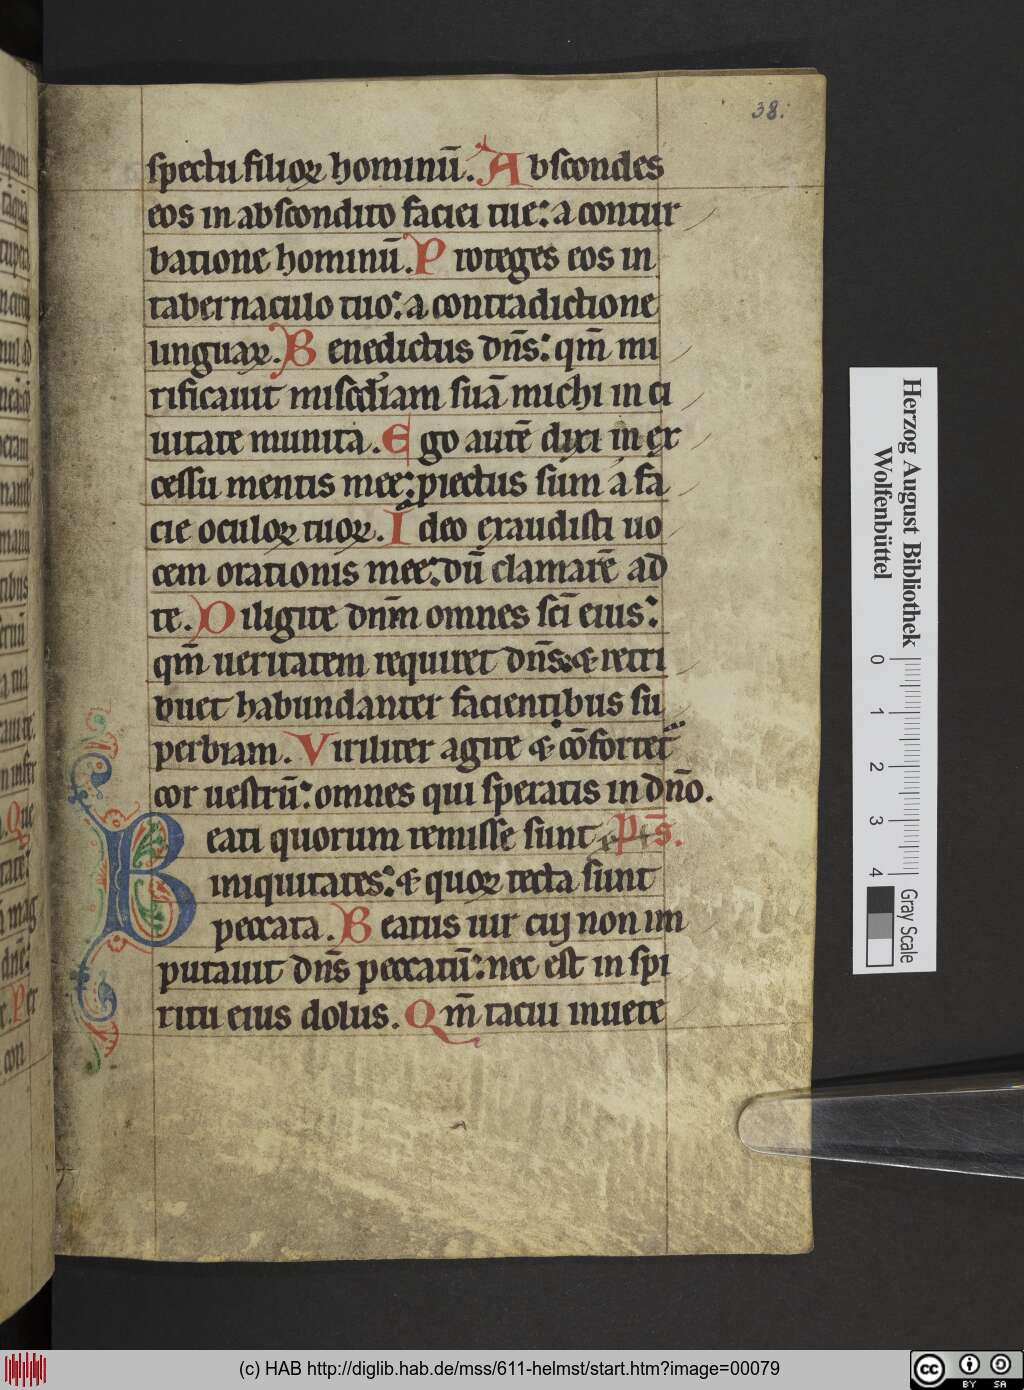 38.
spectu filioꝝ hominū. Abscondes
eos in abscondito faciei tue: a contur
batione hominū. Proteges eos in
tabernaculo tuo: a contradictione
linguaꝝ. Benedictus dn̄s: qm̄ mi
rificauit misc̄diam suā michi in ci
uitate munita. Ego autē dixi in ex
cessu mentis mee: piectus sum a fa
cie oculoꝝ tuoꝝ. Ideo exaudisti uo
cem orationis mee: dū clamarē ad
te. Diligite dnm̄ omnes sc̄i eius:
qm̄ ueritatem requiret dn̄s: & retri
buet habundanter facientibus su
perbiam. Viriliter agite & cōfortet᷑
cor uestrū: omnes qui speratis in dn̄o.
Beati quorum remisse sunt Ps̄.
iniquitates: & quoꝝ tecta sunt
peccata. Beatus uir cui non im
putauit dn̄s peccatū: nec est in spi
ritu eius dolus. Qm̄ tacui inuete
Herzog August Bibliothek
Wolfenbüttel
0 1 2 3 4
Gray Scale
(c) HAB http://diglib.hab.de/mss/611-helmst/start.htm?image=00079
cc BY SA